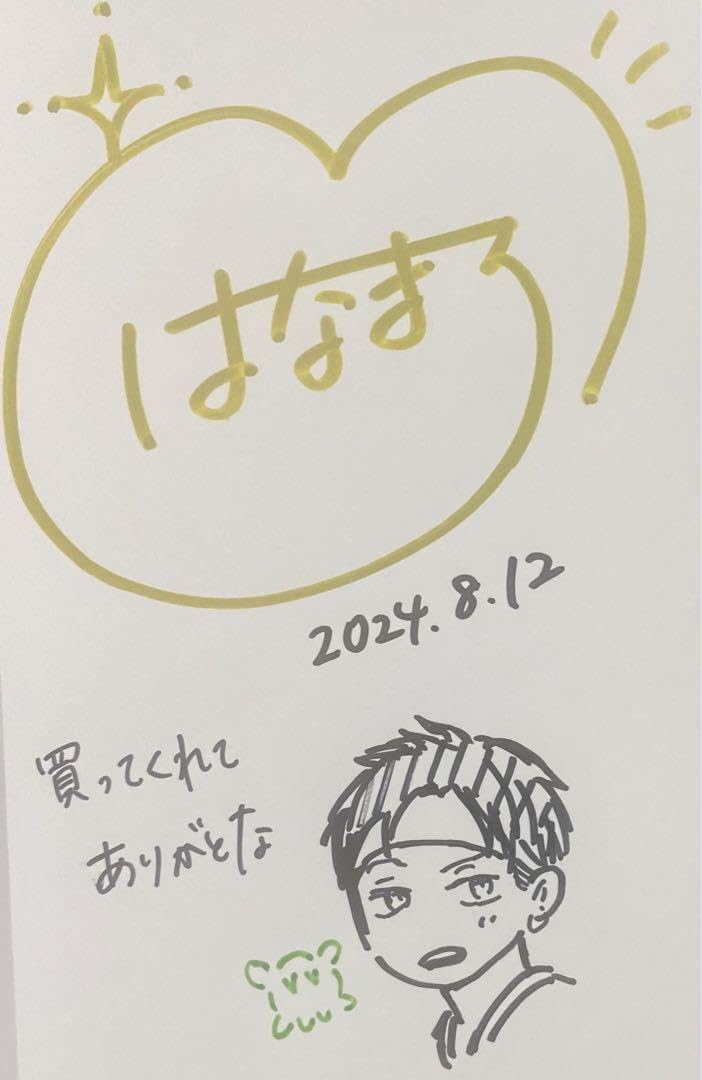 はなまる
2024.8.12
買ってくれて
ありがとな